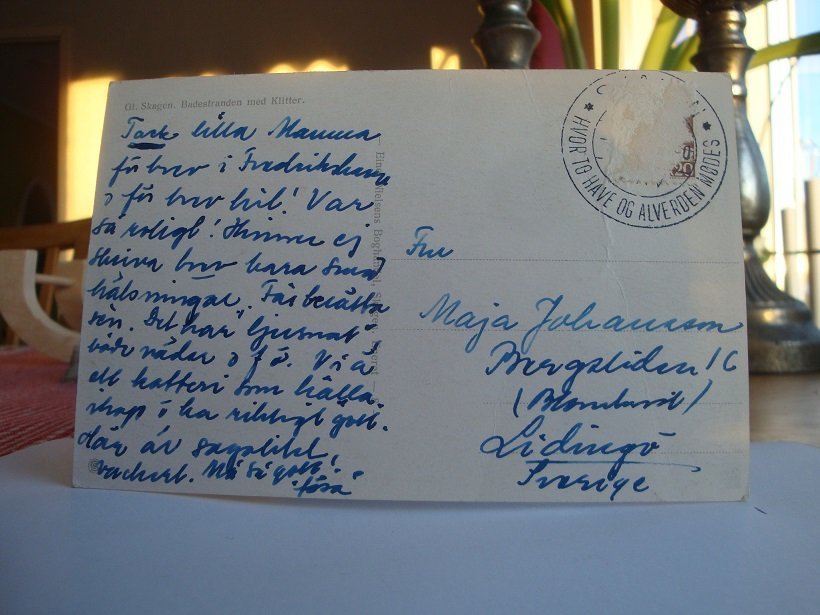 Gl. Skagen. Badestranden med Klitter.
Tack lilla Mamma
för brev i Fredrikshavn
o för brev hit! Var
så roligt! Hinner ej
skriva brev bara små
hälsningar. Får berätta
sen. Det har ljusnat
både väder o f ö. Vi ä
ett katteri som hålla
ihop i ha riktigt gott.
Här är sagolikt
vackert. Må så gott!
HVOR TO HAVE OG ALVERDEN MØDES
20
Fru
Maja Johansson
Bergsliden 16
Lidingö
Sverige